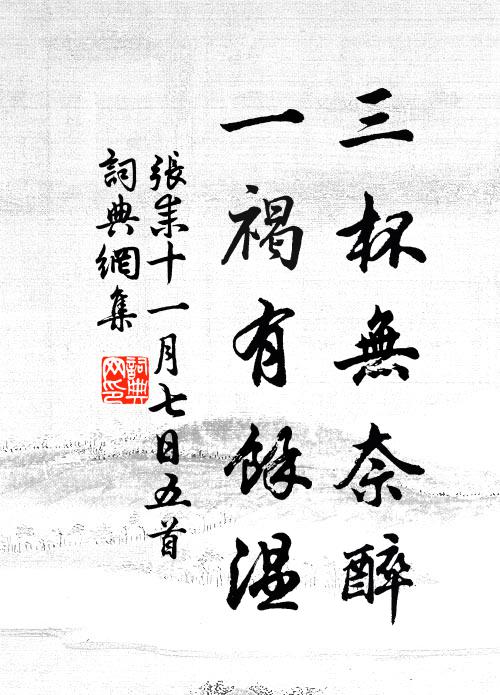 三杯無奈醉
一褐有餘温
張耒十一月七日五首
詞典網集
詞典
网印